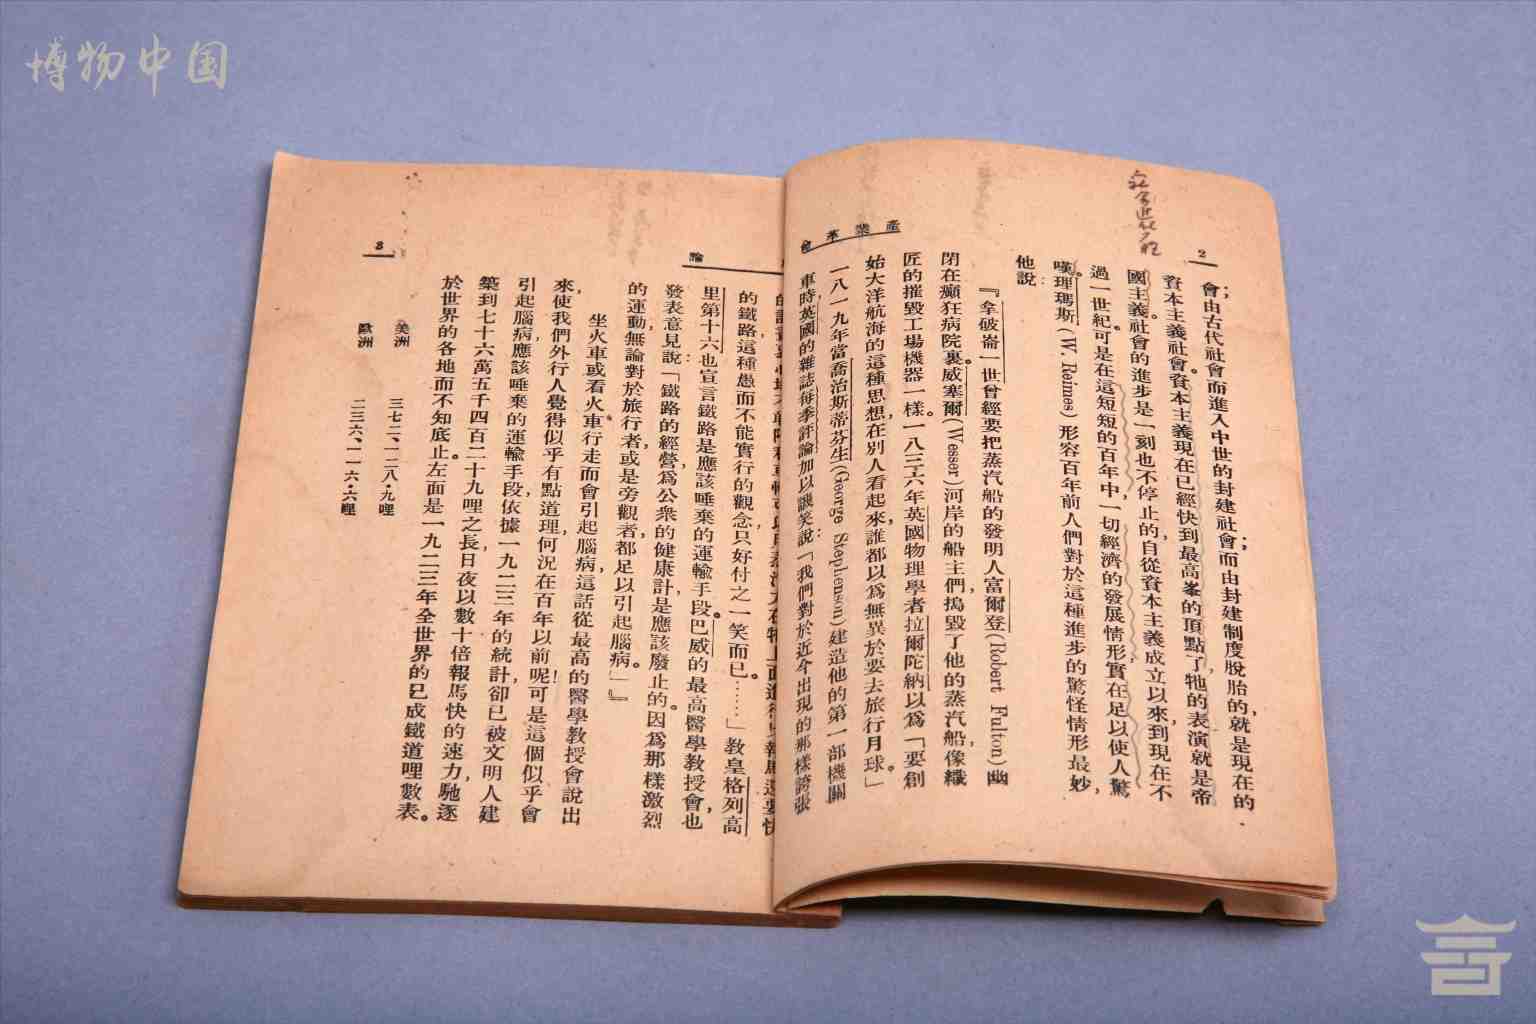 博物中国
2
產業革命
會由古代社會而進入中世的封建社會而由封建制度脫胎的,就是現在的
資本主義社會。資本主義現在已經快到最高峯的頂點了,牠的表演就是帝
國主義社會的進步是一刻也不停止的。自從資本主義成立以來,到現在不
過一世紀。可是在這短短的百年中,一切經濟的發展情形,實在足以使人驚
嘆。理瑪斯(W. Reimes)形容百年前人們對於這種進步的驚怪情形最妙,
他說:
『拿破崙一世曾經要把蒸汽船的發明人富爾登(Robert Fulton)幽
閉在癲狂病院裏。威塞爾(Wesser)河岸的船主們,搗毀了他的蒸汽船,像織
匠的摧毀工場機器一樣。一八三六年英國物理學者拉爾陀納以爲「要創
始大洋航海的這種思想,在別人看起來,誰都以爲無異於要去旅行月球。」
一八一九年當喬治斯蒂芬生(George Stephenson)建造他的第一部機關
車時,英國的雜誌每季評論加以譏笑說:「我們對於近今出現的那樣誇張
論
3
的鐵路,這種愚而不能實行的觀念,只好付之一笑而已……」教皇格列高
里第十六也宣言鐵路是應該唾棄的運輸手段。巴威的最高醫學教授會,也
發表意見說:「鐵路的經營,爲公衆的健康計,是應該廢止的。因爲那樣激烈
的運動,無論對於旅行者或是旁觀者,都足以引起腦病。」』
坐火車或看火車行走而會引起腦病,這話從最高的醫學教授會說出
來,使我們外行人覺得似乎有點道理,何況在百年以前呢!可是這個似乎會
引起腦病,應該唾棄的運輸手段,依據一九二三年的統計,卻已被文明人建
築到七十六萬五千四百二十九哩之長,日夜以數十倍報馬快的速力,馳逐
於世界的各地而不知底止。左面是一九二三年全世界的已成鐵道哩數表。
美洲 三七二、一二八・九哩
歐洲 二三六、一一六・六哩